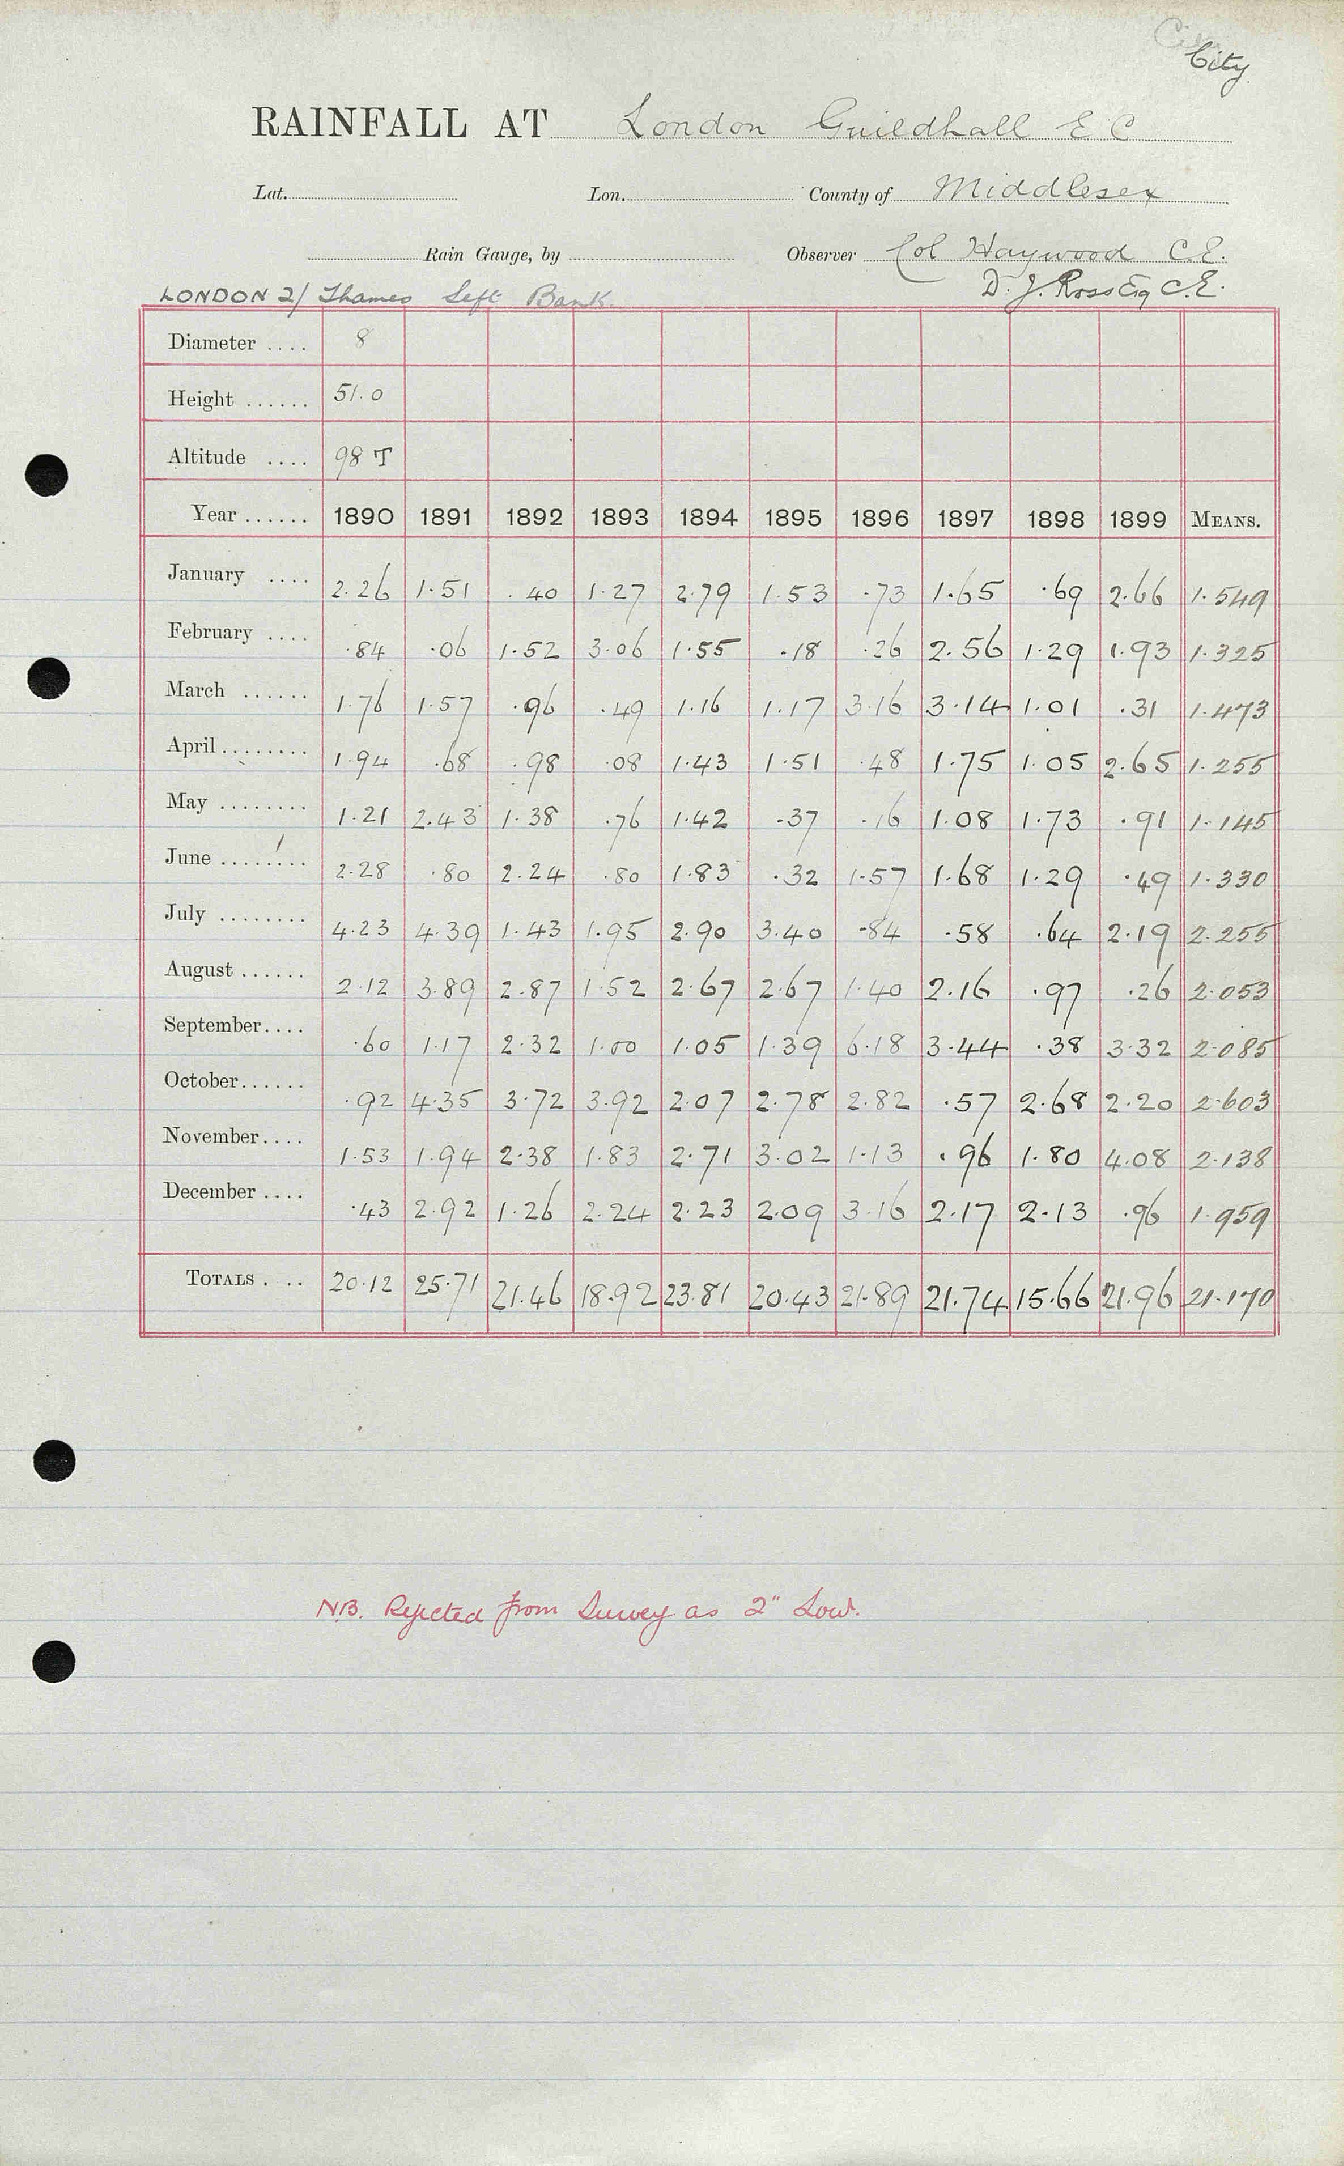 City
RAINFALL AT London Guildhall E C
Lat. Lon. County of Middlesex
Rain Gauge, by Observer Col Haywood C.E.
LONDON 2/ Thames Left Bank. D. J. Ross Esq C.E.
Diameter .... 8
Height ...... 51.0
Altitude .... 98 T
Year ...... 1890 1891 1892 1893 1894 1895 1896 1897 1898 1899 MEANS.
January .... 2.26 1.51 .40 1.27 2.79 1.53 .73 1.65 .69 2.66 1.549
February .... .84 .06 1.52 3.06 1.55 .18 .26 2.56 1.29 1.93 1.325
March ...... 1.76 1.57 .96 .49 1.16 1.17 3.16 3.14 1.01 .31 1.473
April ........ 1.94 .68 .98 .08 1.43 1.51 .48 1.75 1.05 2.65 1.255
May ........ 1.21 2.43 1.38 .76 1.42 .37 .16 1.08 1.73 .91 1.145
June ........ 2.28 .80 2.24 .80 1.83 .32 1.57 1.68 1.29 .49 1.330
July ........ 4.23 4.39 1.43 1.95 2.90 3.40 .84 .58 .64 2.19 2.255
August ...... 2.12 3.89 2.87 1.52 2.67 2.67 1.40 2.16 .97 .26 2.053
September .... .60 1.17 2.32 1.00 1.05 1.39 6.18 3.44 .38 3.32 2.085
October ...... .92 4.35 3.72 3.92 2.07 2.78 2.82 .57 2.68 2.20 2.603
November .... 1.53 1.94 2.38 1.83 2.71 3.02 1.13 .96 1.80 4.08 2.138
December .... .43 2.92 1.26 2.24 2.23 2.09 3.16 2.17 2.13 .96 1.959
TOTALS . .. 20.12 25.71 21.46 18.92 23.81 20.43 21.89 21.74 15.66 21.96 21.170
N.B. Rejected from Survey as 2" Low.